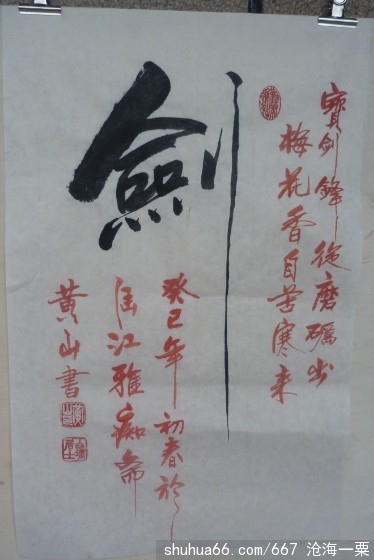 寶劍鋒從磨礪出
梅花香自苦寒来
劍
癸巳年初春於
江雅痴齋
黄山書
shuhua66.com/667 沧海一粟